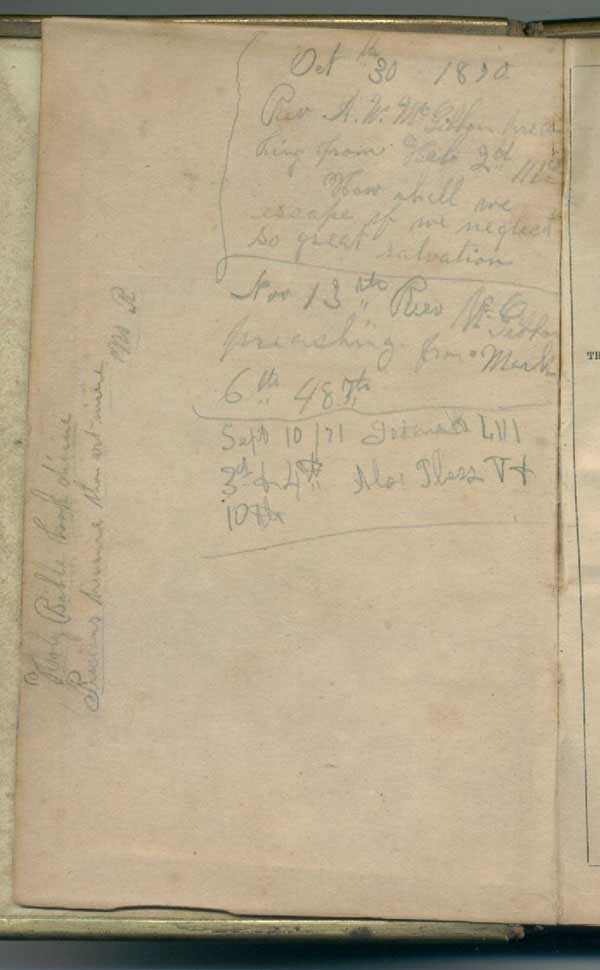 Oct 30th 1870
Rev A. W. McGibbon preac
hing from Heb 2d
How shall we
escape if we neglect
so great salvation
Nov 13th Rev Mc
preashing from Mark
6th 48th
Sept 10 /71 LIII
3d & 4th Also Thess V +
10th
Holy Bible book divine
Precious treasure thou art mine